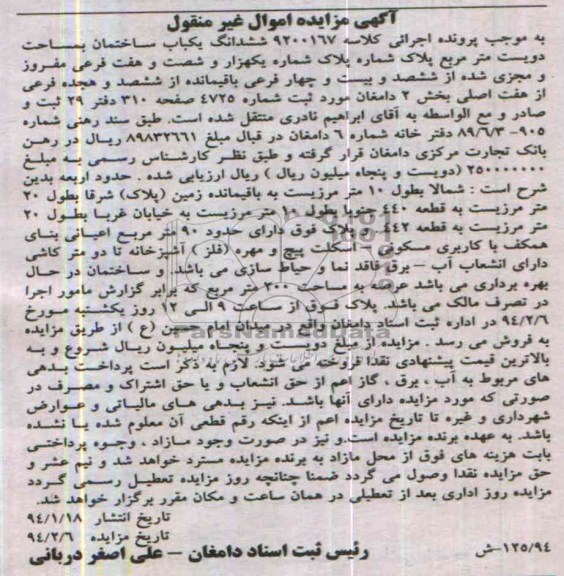 آگهی مزایده اموال غیر منقول
به موجب پرونده اجرائی کلاسه ۹۲۰۰۱۶۷ ششدانگ یکباب ساختمان بمساحت
دویست متر مربع پلاک شماره پلاک شماره یکهزار و شصت و هفت فرعی مفروز
و مجزی شده از ششصد و بیست و چهار فرعی باقیمانده از ششصد و هجده فرعی
از هفت اصلی بخش ۲ دامغان مورد ثبت شماره ۴۷۲۵ صفحه ۳۱۰ دفتر ۲۹ ثبت و
صادر و مع الواسطه به آقای ابراهیم نادری منتقل شده است. طبق سند رهنی شماره
۹۰۵- ۸۹/۶/۳ دفتر خانه شماره ۶ دامغان در قبال مبلغ ۸۹۸۳۲۶۶۱ ریال در رهن
بانک تجارت مرکزی دامغان قرار گرفته و طبق نظر کارشناس رسمی به مبلغ
۲۵۰۰۰۰۰۰۰ (دویست و پنجاه میلیون ریال ) ریال ارزیابی شده . حدود اربعه بدین
شرح است : شمالا بطول ۱۰ متر مرزیست به باقیمانده زمین (پلاک) شرقا بطول ۲۰
متر مرزیست به قطعه ۴۴۰ جنوبا بطول ۱۰ متر مرزیست به خیابان غربا بطول ۲۰
متر مرزیست به قطعه ۴۴۲. و پلاک فوق دارای حدود ۹۰ متر مربع اعیانی بنای
همکف با کاربری مسکونی – اسکلت پیچ و مهره (فلز ) آشپزخانه تا دو متر کاشی
دارای انشعاب آب – برق فاقد نما و حیاط سازی می باشد. و ساختمان در حال
بهره برداری می باشد عرصه به ساحت ۲۰۰ متر مربع که برابر گزارش مامور اجرا
در تصرف مالک می باشد. پلاک فوق از ساعت ۹ الی ۱۲ روز یکشنبه مورخ
۹۴/۲/۶ در اداره ثبت اسناد دامغان واقع در میدان امام حسین (ع ) از طریق مزایده
به فروش می رسد . مزایده از مبلغ دویست و پنجاه میلیون ریال شروع و به
بالاترین قیمت پیشنهادی نقدا فروخته می شود. لازم به ذکر است پرداخت بدهی
های مربوط به آب ، برق ، گاز اعم از حق انشعاب و یا حق اشتراک و مصرف در
صورتی که مورد مزایده دارای آنها باشد. نیز بدهی های مالیاتی و عوارض
شهرداری و غیره تا تاریخ مزایده اعم از اینکه رقم قطعی آن معلوم شده یا نشده
باشد. به عهده برنده مزایده است.و نیز در صورت وجود مازاد ، وجوه پرداختی
بابت هزینه های فوق از محل مازاد به برنده مزایده مسترد خواهد شد و نیم عشر و
حق مزایده نقدا وصول می گردد ضمنا چنانچه روز مزایده تعطیل رسمی گردد
مزایده روز اداری بعد از تعطیلی در همان ساعت و مکان مقرر برگزار خواهد شد.
تاریخ انتشار ۹۴/۱/۱۸
تاریخ مزایده ۹۴/۲/۶
۱۲۵/۹۴-ش رئیس ثبت اسناد دامغان – علی اصغر دربانی
ParsNamadData